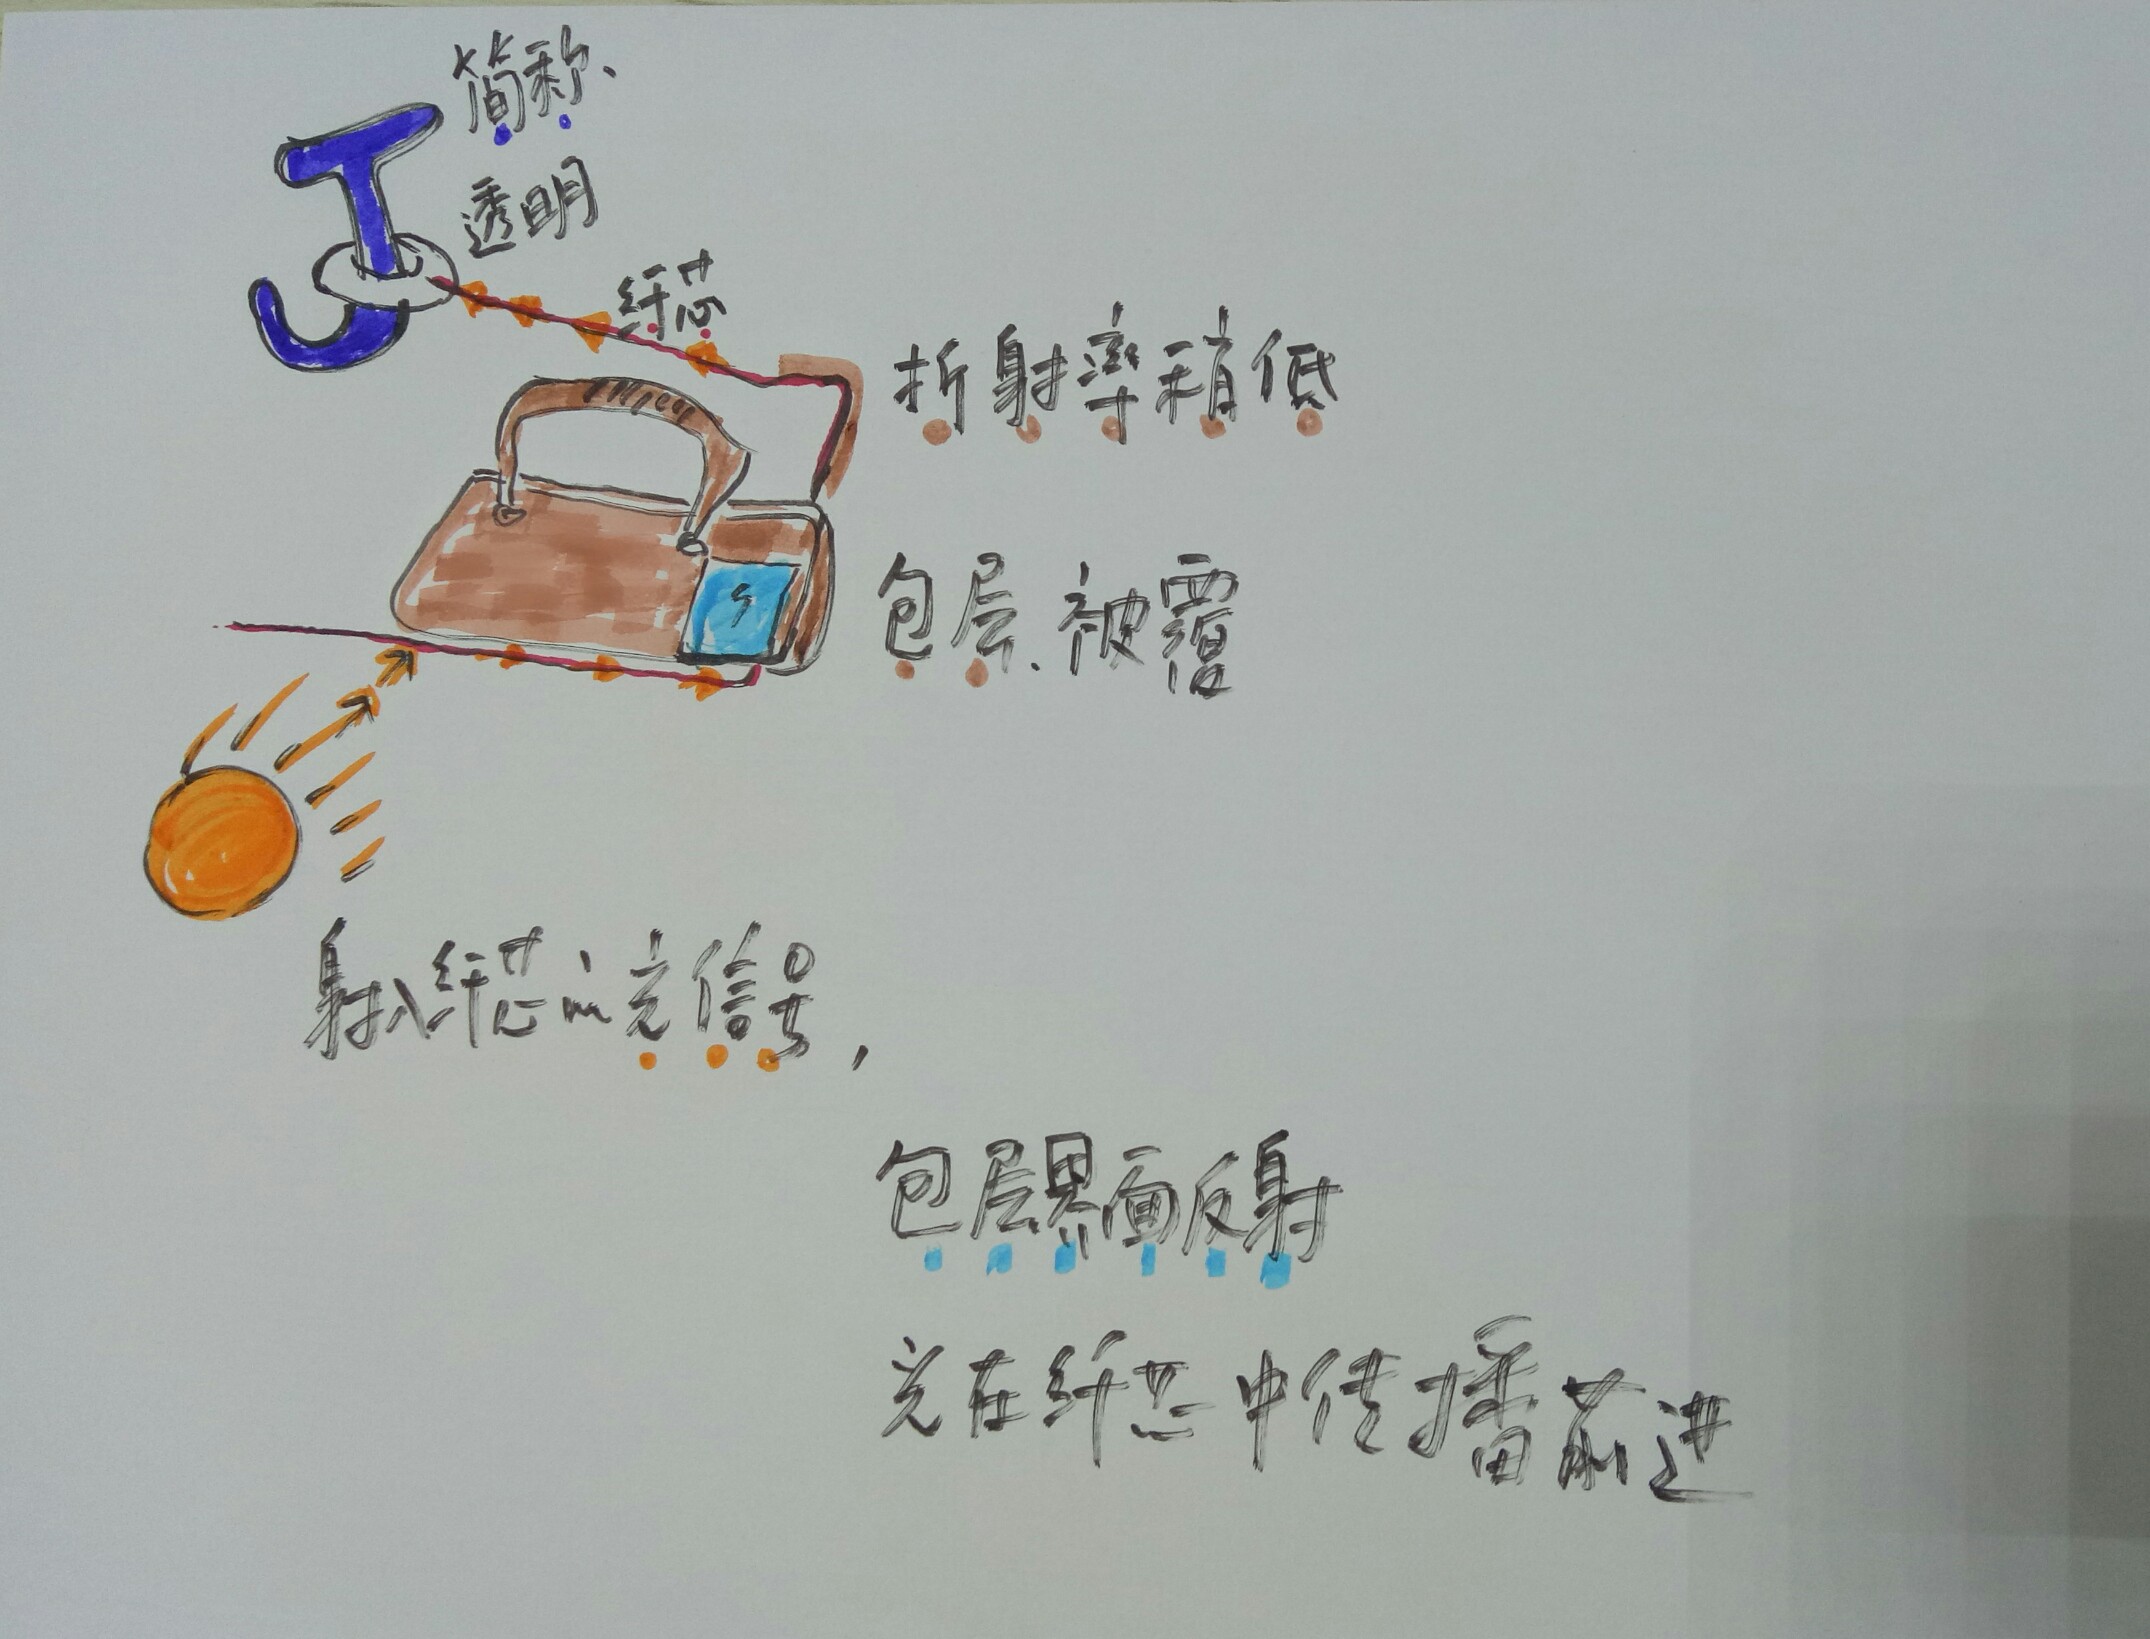 简称、
透明
纤芯
折射率稍低
包层、被覆
射入纤芯的光信号，
包层界面反射
光在纤芯中传播前进